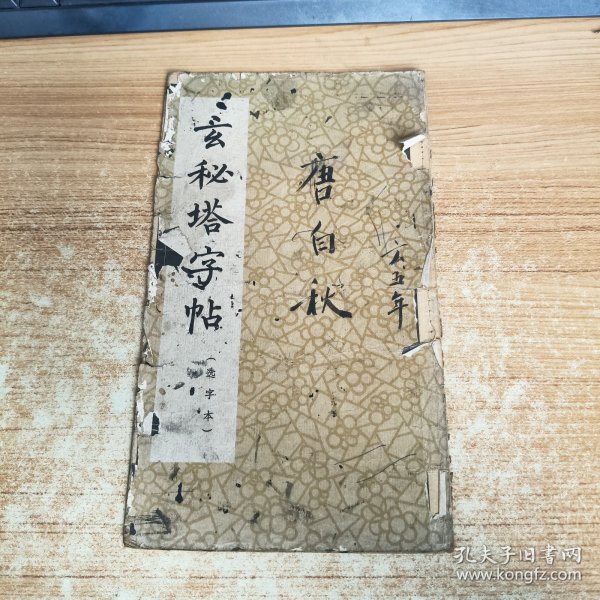 玄秘塔字帖
(选字本)
唐白秋
六五年
孔夫子旧书网
www.kongfz.com